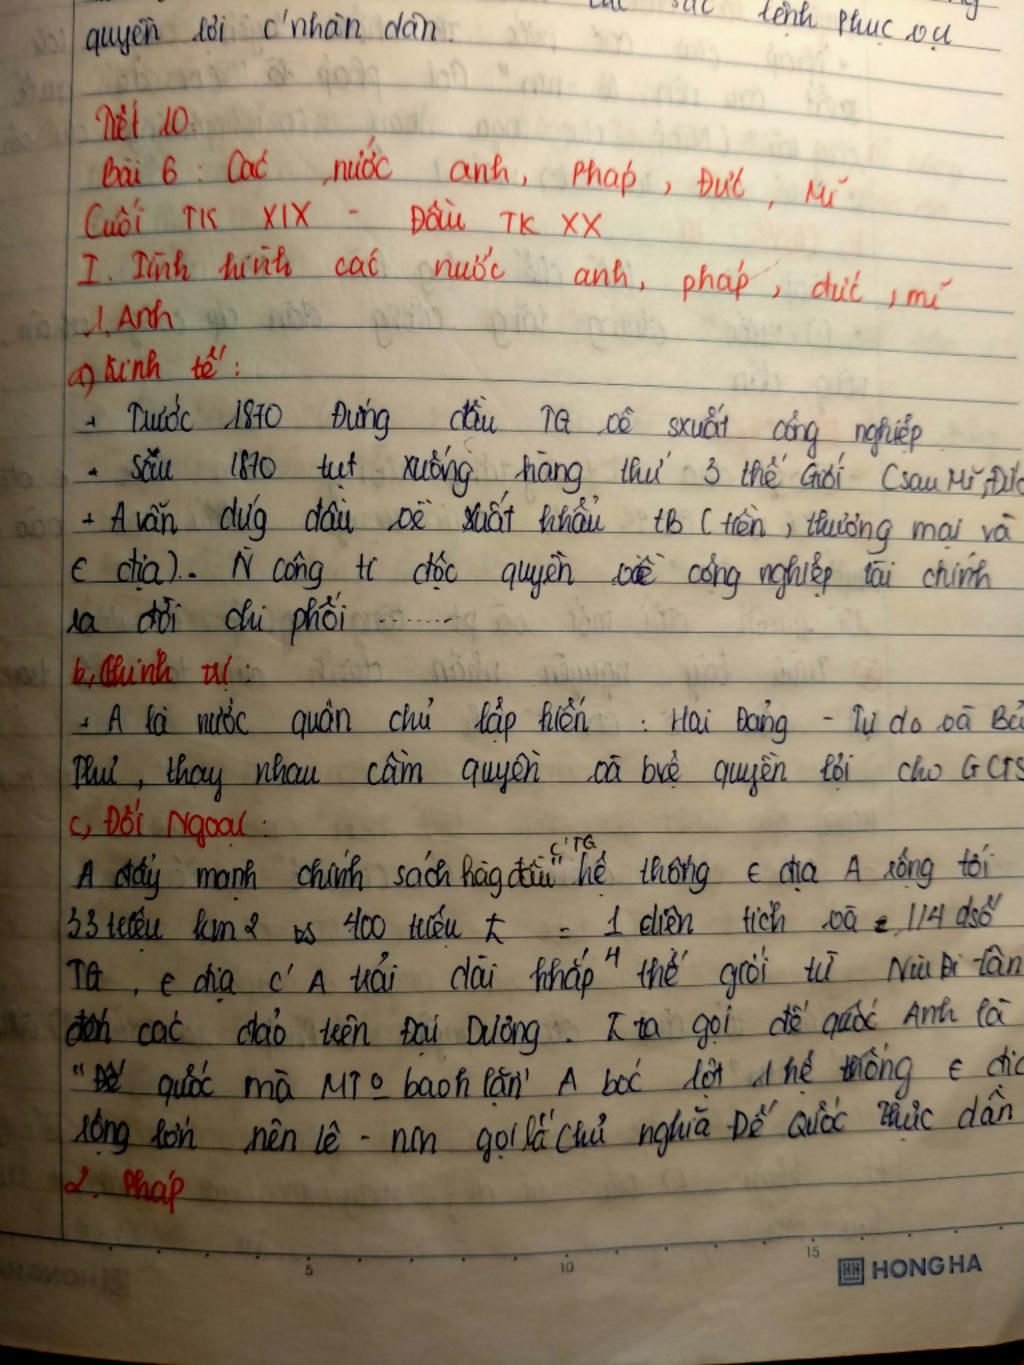 sắc lệnh phục vụ
quyền lợi c' nhân dân.
Tiết 10:
Bài 6 : Các nước anh, Pháp, Đức, Mĩ
Cuối TK XIX - Đầu TK XX
I. Tình hình các nước anh, pháp, đức, mĩ
1, Anh
a) Kinh tế :
+ Trước 1870 Đứng đầu TG về sxuất công nghiệp
+ Sau 1870 tụt xuống hàng thứ 3 thế Giới (sau Mĩ, Đức
+ A vẫn đứg đầu về xuất khẩu TB (tiền, thương mại và
€ địa). Ñ công ti độc quyền về công nghiệp tài chính
ra đời chi phối .......
b, Chính trị :
+ A là nước quân chủ lập hiến : Hai Đảng - Tự do và Bả
Thủ, thay nhau cầm quyền và bvệ quyền lợi cho GCTS
c, Đối Ngoại :
c' TG
A đẩy mạnh chính sách hàg đầu" hệ thống € địa A rộng tới
33 triệu km2 vs 400 triệu = 1 diện tích và = 1/4 dsố
TG, € địa c' A trải dài khắp 4 thế giới từ Niu Di lân
đến các đảo trên Đại Dương. ta gọi đế quốc Anh là
"Đế quốc mà MT o bao h lặn" A bóc lột 1 hệ thống € địa
rộng lớn nên lê - nin gọi là Chủ nghĩa Đế Quốc Thực dân
2. Pháp
5 10 15
HH HONG HA